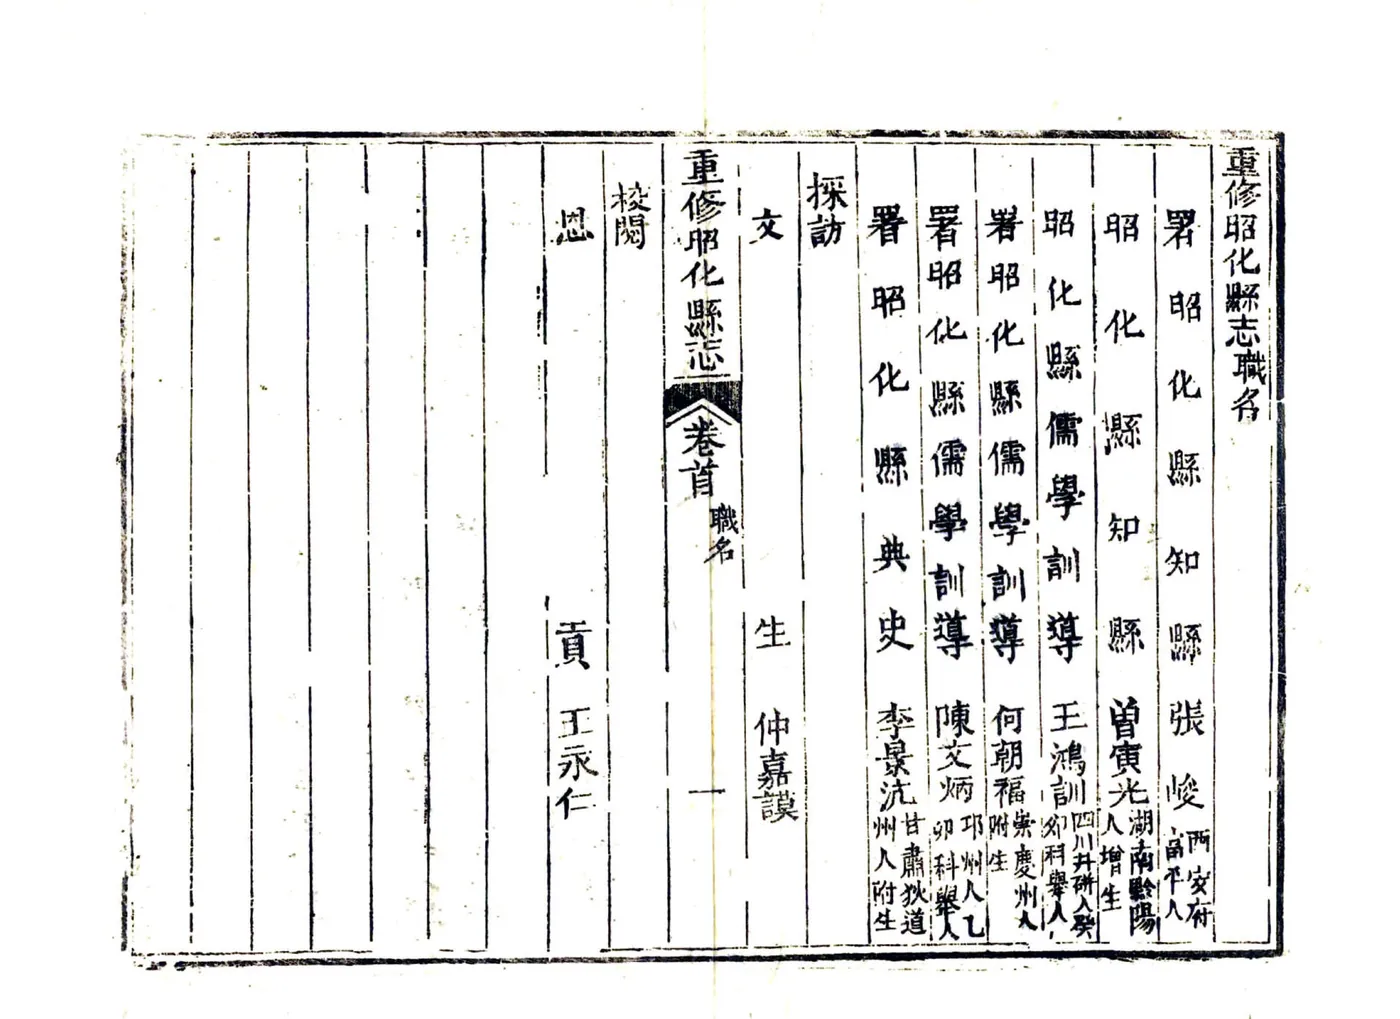 重修昭化縣志職名
署昭化縣知縣張峻西安府富平人
昭化縣知縣曾寅光湖南黔陽人增生
昭化縣儒學訓導王鴻訓四川井研人癸卯科舉人
署昭化縣儒學訓導何朝福崇慶州人附生
署昭化縣儒學訓導陳文炳邛州人乙卯科舉人
署昭化縣典史李景沆甘肅狄道州人附生
採訪
文生仲嘉謨
重修昭化縣志
卷首
職名
一
校閱
恩貢王永仁